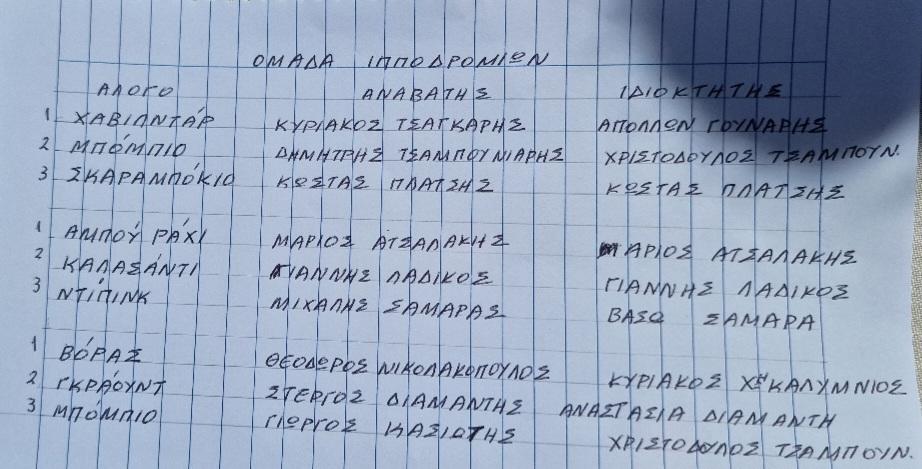 ΟΜΑΔΑ ΙΠΠΟΔΡΟΜΙΩΝ
ΑΛΟΓΟ ΑΝΑΒΑΤΗΣ ΙΔΙΟΚΤΗΤΗΣ
1 ΧΑΒΙΑΝΤΆΡ ΚΥΡΙΑΚΟΣ ΤΣΑΓΚΑΡΗΣ ΑΠΟΛΛΩΝ ΓΟΥΝΑΡΗΣ
2 ΜΠΌΜΠΙΟ ΔΗΜΗΤΡΗΣ ΤΣΑΜΠΟΥΝΙΑΡΗΣ ΧΡΙΣΤΟΔΟΥΛΟΣ ΤΣΑΜΠΟΥΝ.
3 ΣΚΑΡΑΜΠΌΚΙΟ ΚΩΣΤΑΣ ΠΛΑΤΣΗΣ ΚΩΣΤΑΣ ΠΛΑΤΣΗΣ
1 ΑΜΠΟΎ ΡΆΧΙ ΜΑΡΙΟΣ ΑΤΣΑΛΑΚΗΣ ΜΑΡΙΟΣ ΑΤΣΑΛΑΚΗΣ
2 ΚΑΛΑΣΆΝΤΙ ΓΙΑΝΝΗΣ ΛΑΔΙΚΟΣ ΓΙΑΝΝΗΣ ΛΑΔΙΚΟΣ
3 ΝΤΊΠΙΝΚ ΜΙΧΑΛΗΣ ΣΑΜΑΡΑΣ ΒΑΣΩ ΣΑΜΑΡΑ
1 ΒΌΡΑΣ ΘΕΟΔΩΡΟΣ ΝΙΚΟΛΑΚΟΠΟΥΛΟΣ ΚΥΡΙΑΚΟΣ ΧΉΚΑΛΥΜΝΙΟΣ
2 ΓΚΡΆΟΥΝΤ ΣΤΕΡΓΟΣ ΔΙΑΜΑΝΤΗΣ ΑΝΑΣΤΑΣΙΑ ΔΙΑΜΑΝΤΗ
3 ΜΠΌΜΠΙΟ ΓΙΩΡΓΟΣ ΚΑΣΙΩΤΗΣ ΧΡΙΣΤΟΔΟΥΛΟΣ ΤΣΑΜΠΟΥΝ.